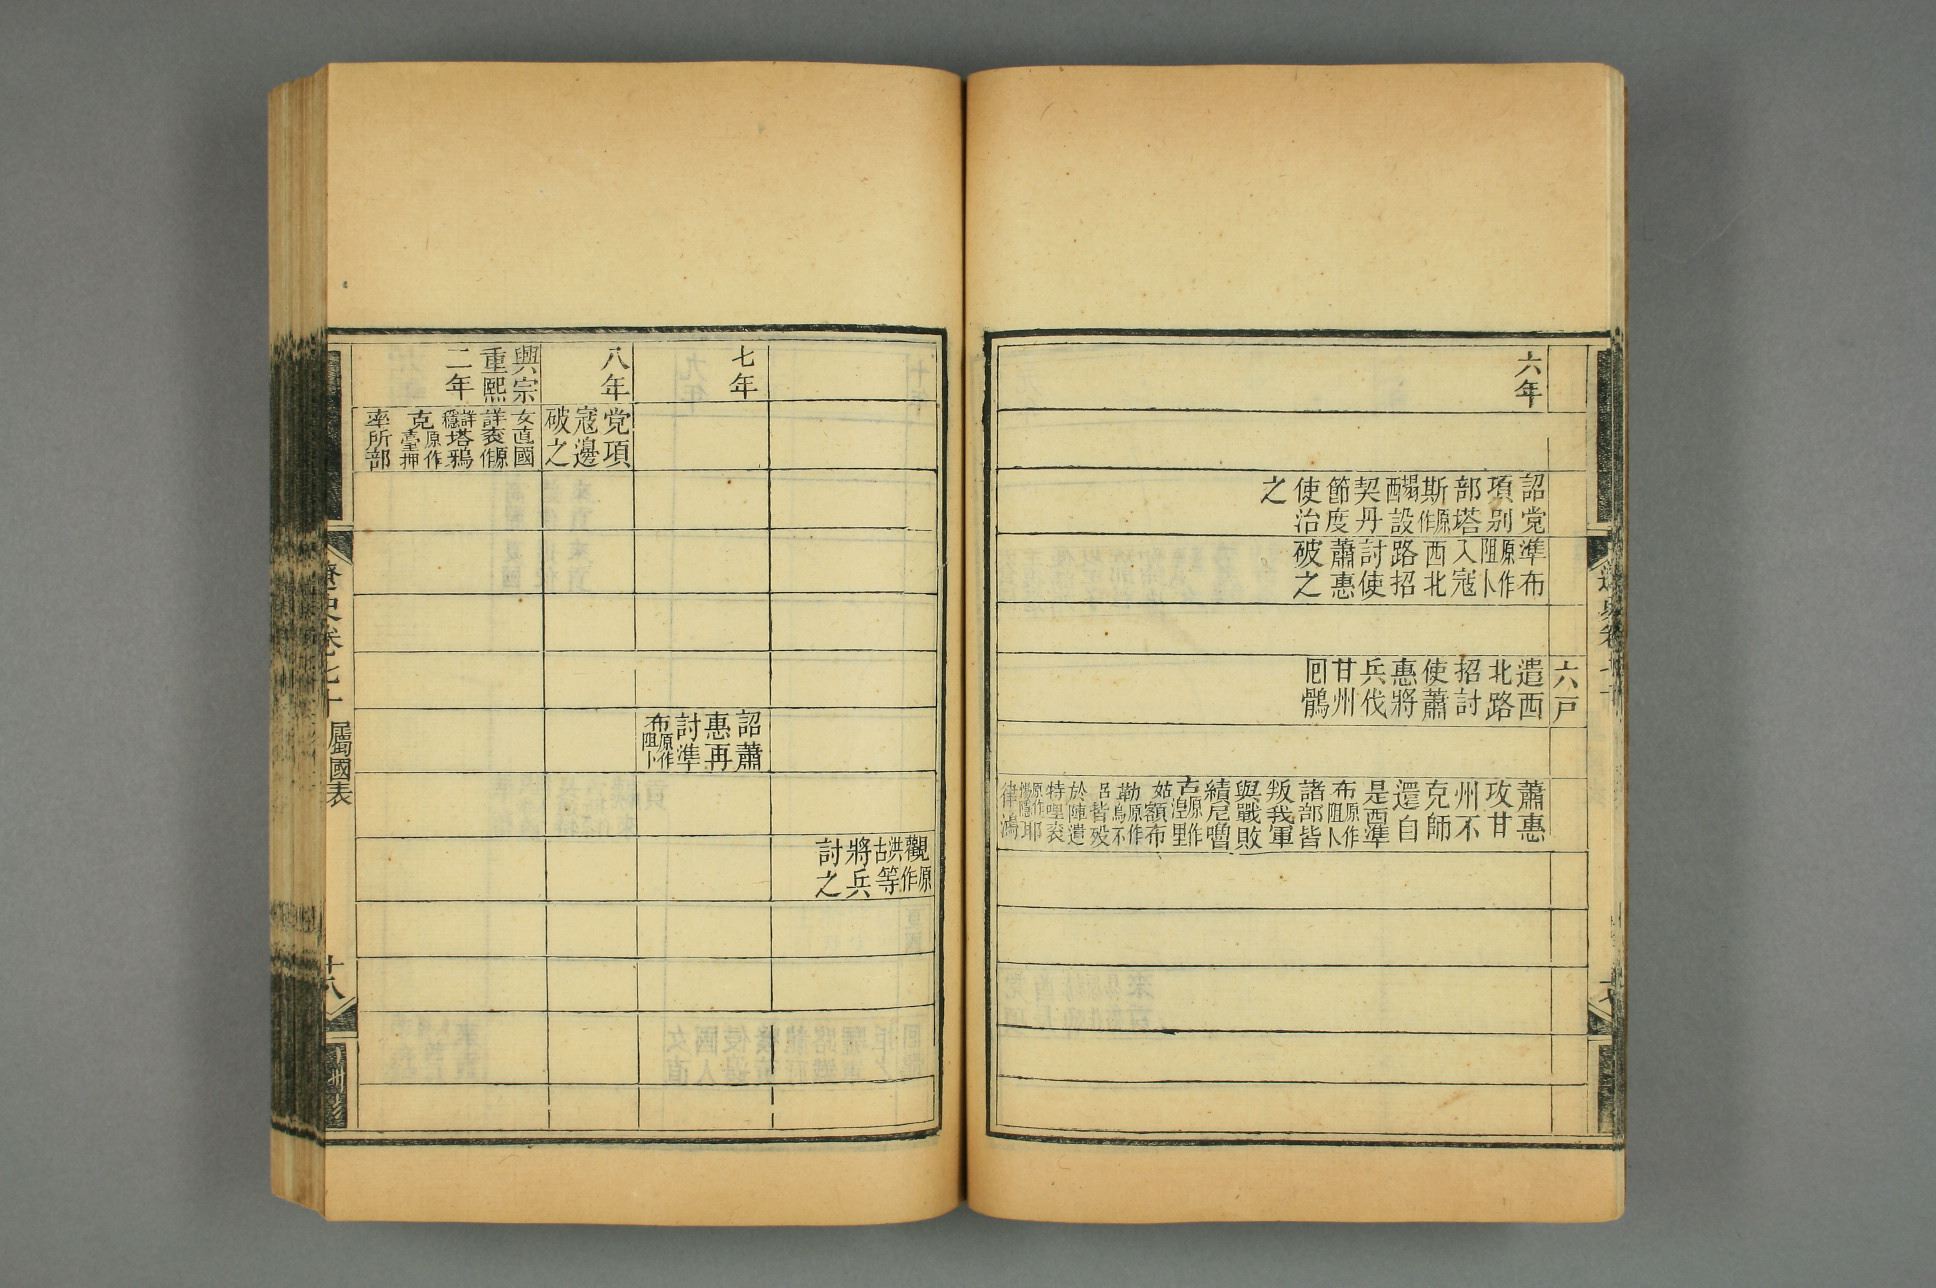 六戶
六年
詔党
項别
部塔
斯原作
設
契丹
節度
使治
之
準布
原作阻卜
入寇
西北
路招
討使
蕭惠
破之
遣西
北路
招討
使蕭
惠將
兵伐
甘州
囘鶻
蕭惠
攻甘
州不
克師
還自
是西準
布原作阻卜
諸部皆
叛我軍
與戰敗
績尼嚕
古原作湼里
姑額布
勒原作曷不
呂皆殁
於陣遣
特哩衮
原作惕隱耶
律鴻
觀原作
洪古等
將兵
討之
七年
詔蕭
惠再
討準
布原作阻卜
八年
党項
寇邊
破之
興宗
重熙
二年
女直國
詳衮原作
詳穩塔鴉
克原作臺押
率所部
遼史卷七十 屬國表 十八